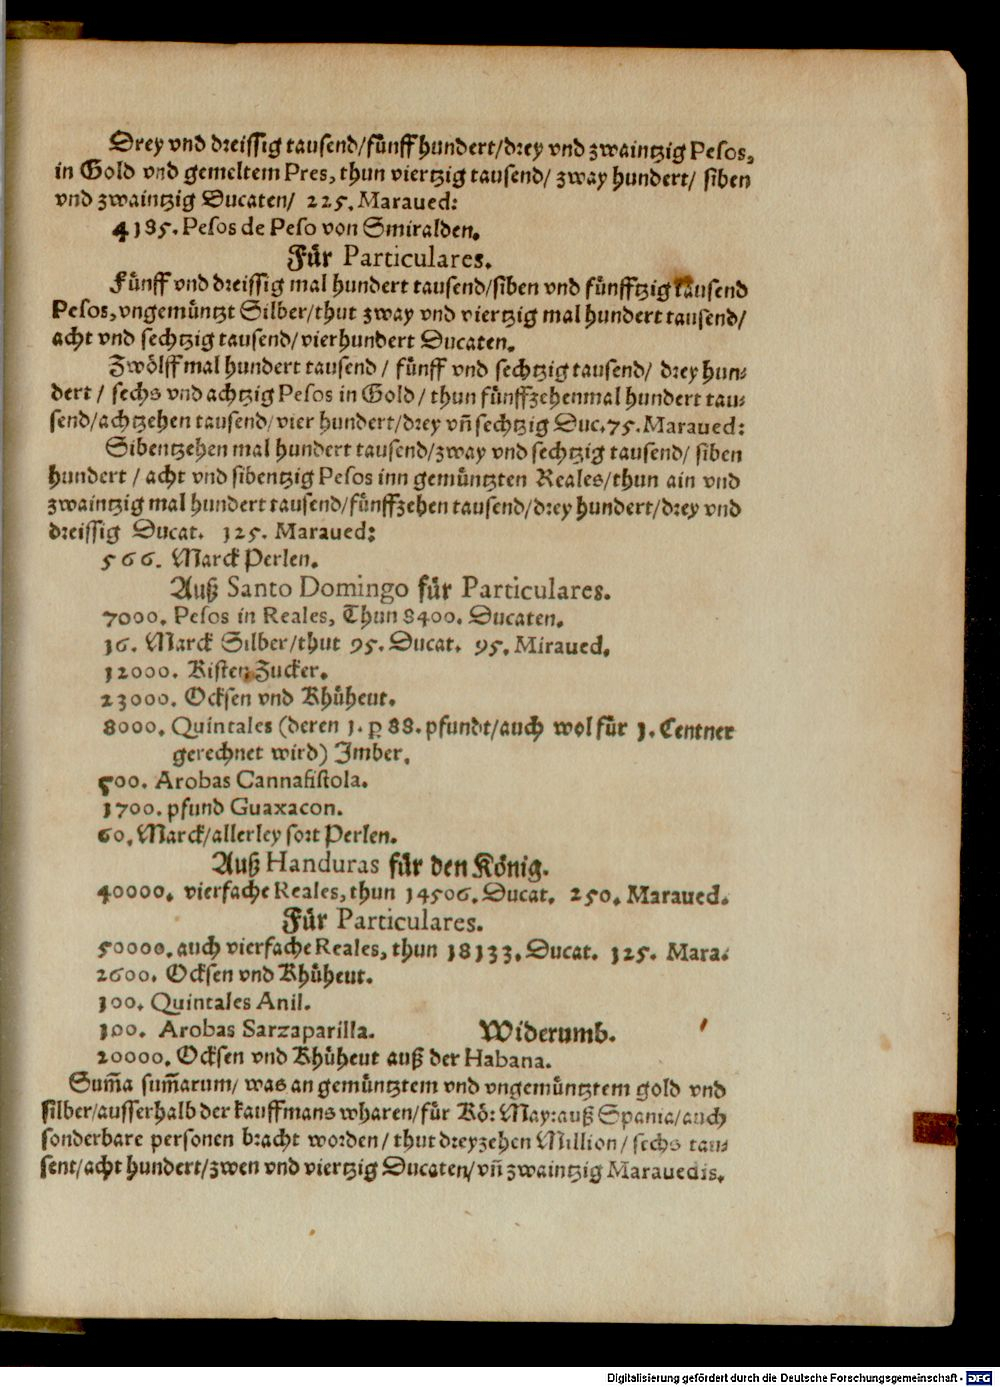 Drey vnd dreissig tausend/fünff hundert/drey vnd zwaintzig Pesos,
in Gold vnd gemeltem Pres, thun viertzig tausend/ zway hundert/ siben
vnd zwaintzig Ducaten/ 225. Maraued:
4185. Pesos de Peso von Smiralden.
Für Particulares.
Fünff vnd dreissig mal hundert tausend/siben vnd fünfftzig tausend
Pesos, vngemüntzt Silber/thut zway vnd viertzig mal hundert tausend/
acht vnd sechtzig tausend/vierhundert Ducaten.
Zwölff mal hundert tausend / fünff vnd sechtzig tausend/ drey hun-
dert / sechs vnd achtzig Pesos in Gold / thun fünffzehenmal hundert tau-
send/achtzehen tausend/vier hundert/drey vñ sechtzig Duc. 75. Maraued:
Sibentzehen mal hundert tausend/zway vnd sechtzig tausend/ siben
hundert / acht vnd sibentzig Pesos inn gemüntzten Reales/thun ain vnd
zwaintzig mal hundert tausend/fünffzehen tausend/drey hundert/drey vnd
dreissig Ducat. 125. Maraued:
566. Marck Perlen.
Auß Santo Domingo für Particulares.
7000. Pesos in Reales, Thun 8400. Ducaten.
16. Marck Silber/thut 95. Ducat. 95. Miraued.
12000. Kisten Zucker.
23000. Ocksen vnd Khüheut.
8000. Quintales (deren 1. p 88. pfundt/auch wol für 1. Centner
gerechnet wird) Imber.
500. Arobas Cannafistola.
1700. pfund Guaxacon.
60. Marck/allerley sort Perlen.
Auß Handuras für den König.
40000. vierfache Reales, thun 14506. Ducat. 250. Maraued.
Für Particulares.
50000. auch vierfache Reales, thun 18133. Ducat. 125. Mara-
2600. Ocksen vnd Khüheut.
100. Quintales Anil.
100. Arobas Sarzaparilla. Widerumb.
20000. Ocksen vnd Khüheut auß der Habana.
Sum̃a sum̃arum/ was an gemüntztem vnd vngemüntztem gold vnd
silber/ausserhalb der kauffmans wharen/für Kö: May: auß Spania/auch
sonderbare personen bracht worden/ thut dreyzehen Million/ sechs tau-
sent/acht hundert/zwen vnd viertzig Ducaten/vñ zwaintzig Marauedis.
Digitalisierung gefördert durch die Deutsche Forschungsgemeinschaft - DFG